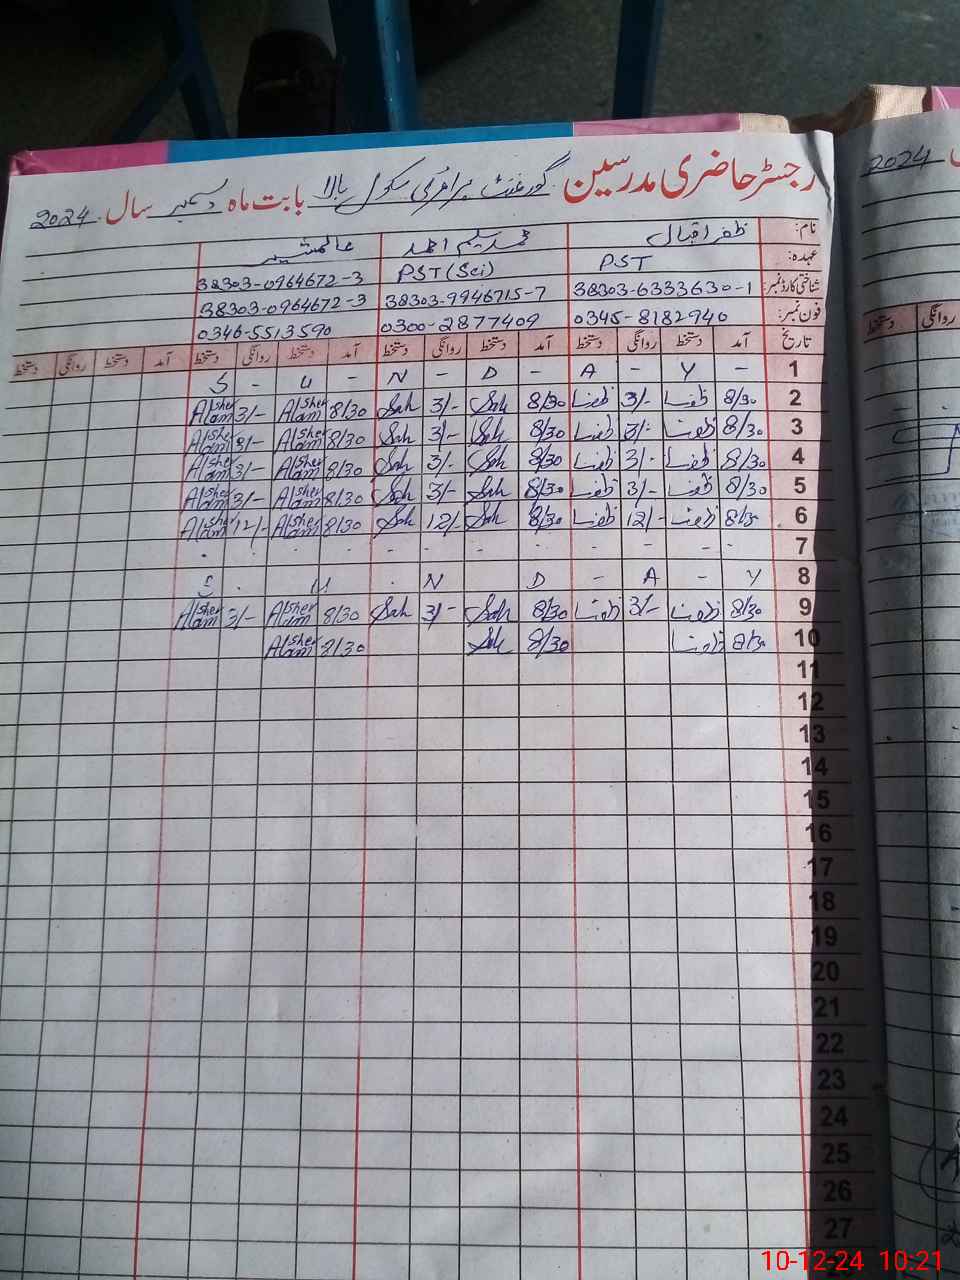 رجسٹر حاضری مدرسین گورنمنٹ پرائمری سکول بالا بابت ماہ دسمبر سال 2024
نام: ظفر اقبال محمد سلیم احمد عالمشیر
عہدہ: PST PST (Sci) 38303-0964672-3
شناختی کارڈ نمبر: 38303-6333630-1 38303-9946715-7 38303-0964672-3
فون نمبر: 0345-8182940 0300-2877409 0346-5513590
تاریخ آمد دستخط روانگی دستخط آمد دستخط روانگی دستخط آمد دستخط روانگی دستخط آمد دستخط روانگی دستخط
1 S - U - N - D - A - Y -
2 8/30 3/- 8/30 Sah 3/- Sah 8/30 Alsher Alam 3/- Alsher Alam
3 8/30 3/- 8/30 Sah 3/- Sah 8/30 Alsher Alam 3/- Alsher Alam
4 8/30 3/- 8/30 Sah 3/- Sah 8/30 Alsher Alam 3/- Alsher Alam
5 8/30 3/- 8/30 Sah 3/- Sah 8/30 Alsher Alam 3/- Alsher Alam
6 8/30 12/- 8/30 Sah 12/- Sah 8/30 Alsher Alam 12/- Alsher Alam
7
8 S . U . N D - A - Y
9 8/30 3/- 8/30 Sah 3/- Sah 8/30 Alsher Alam 3/- Alsher Alam
10 8/30 8/30 Sah 8/30 Alsher Alam
11
12
13
14
15
16
17
18
19
20
21
22
23
24
25
26
27
2024
روانگی دستخط
10-12-24 10:21